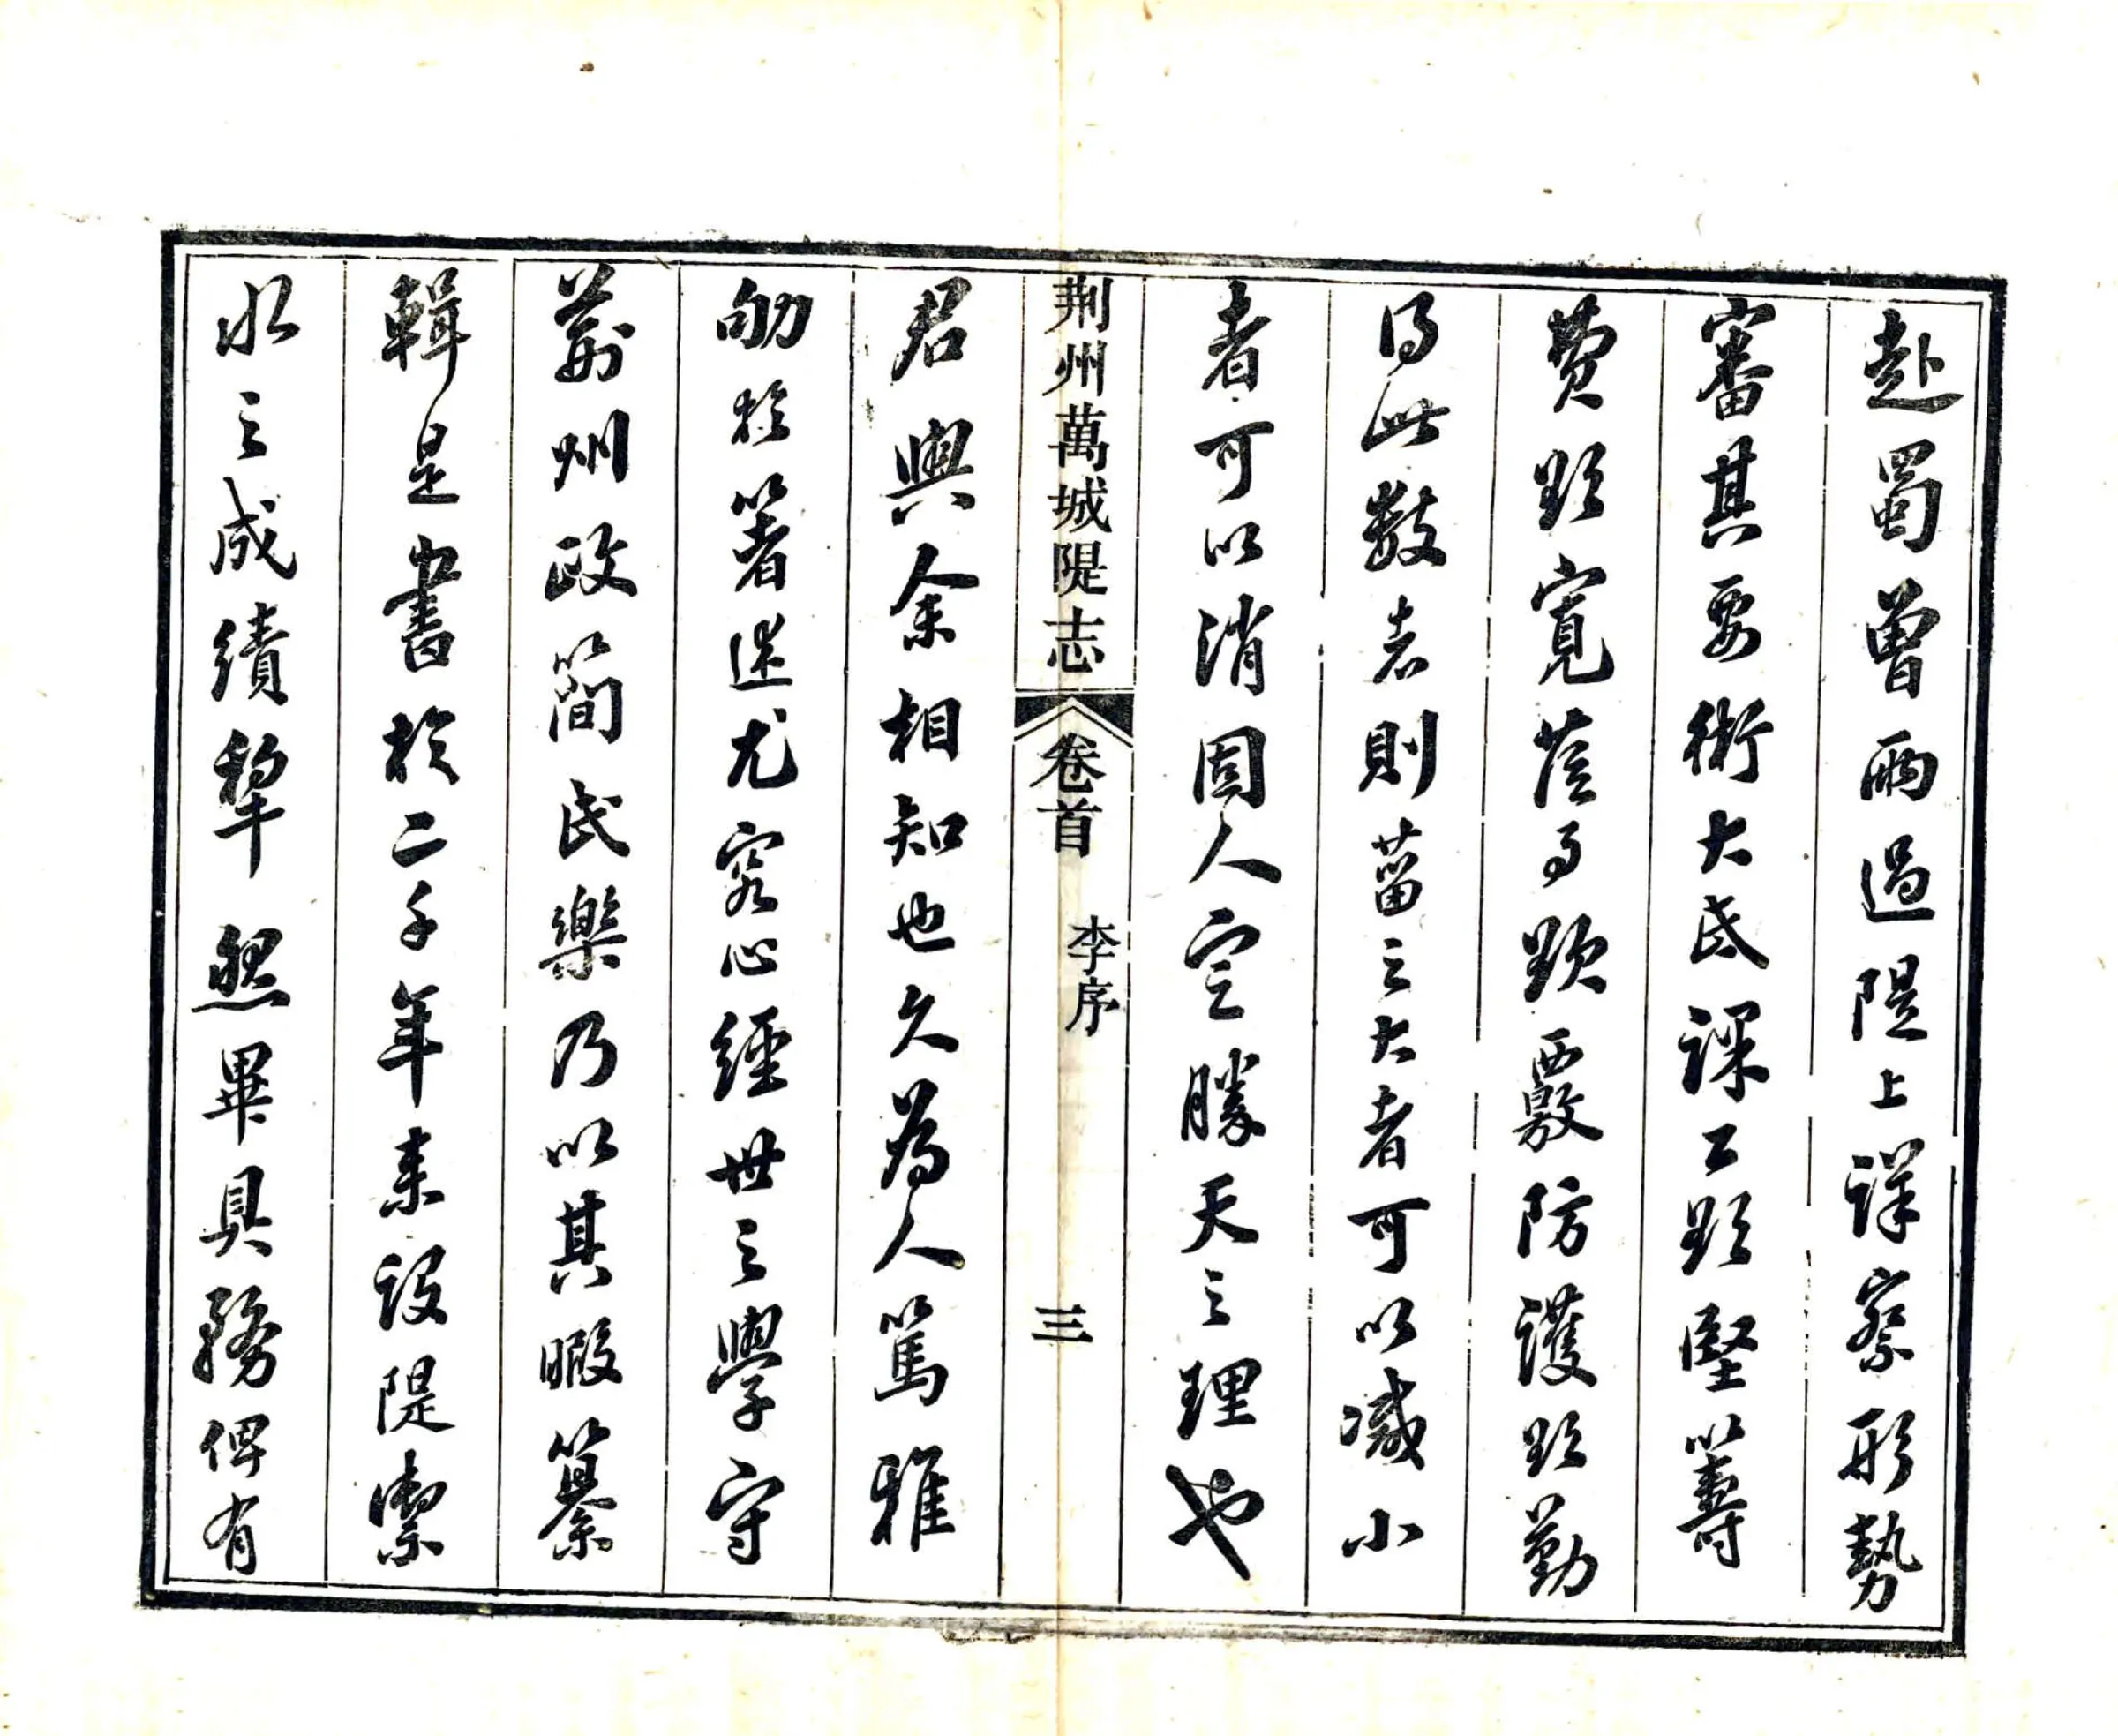 赴蜀曾兩過隄上詳察形勢
審其要術大氐課工欵堅籌
費欵寬蓄帑欵覈防護欵勤
得此數者則菑之大者可以減小
者可以消固人定勝天之理也
荆州萬城隄志
卷首
李序
三
君與余相知也久為人篤雅
劬於著述尤究心經世之學守
荆州政簡民樂乃以其暇纂
輯是書於二千年來設隄禦
水之成績犖然畢具務俾有